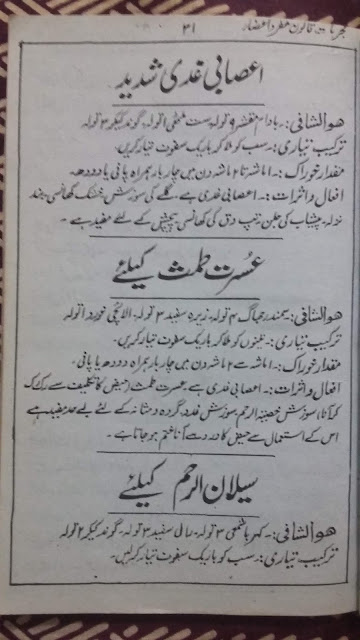 مجربات قانون مفرد اعضاء ۳۱
اعصابی غدی شدید
ھوالشافی:۔ بادام مقشر ۹ تولہ۔ ست ملٹھی ۱ تولہ۔ گوند کیکر ۳ تولہ
ترکیب تیاری:۔ سب کو ملا کر باریک سفوف تیار کریں۔
مقدار خوراک:۔ ۱ ماشہ تا ۲ ماشہ دن میں چار بار ہمراہ پانی یا دودھ۔
افعال و اثرات:۔ اعصابی غدی ہے۔ گلے کی سوزش، خشک کھانسی، بند
نزلہ، پیشاب کی جلن، تپ دق کی کھانسی، پیچش کے لئے مفید ہے۔
عسرت طمث کیلئے
ھوالشافی:۔ سمندر جھاگ ۴ تولہ۔ زیرہ سفید ۲ تولہ۔ الائچی خورد ۱ تولہ
ترکیب تیاری:۔ تینوں کو ملا کر باریک سفوف تیار کریں۔
مقدار خوراک:۔ ۱ ماشہ سے ۲ ماشہ دن میں چار بار ہمراہ دودھ یا پانی۔
افعال و اثرات:۔ اعصابی غدی ہے۔ عسرت طمث (حیض کا تکلیف سے رک رک
کر آنا) سوزش خصیۃ الرحم، سوزش غدد، گردہ و مثانہ کے لئے بے حد مفید ہے
اس کے استعمال سے حیض کا درد سے آنا ختم ہو جاتا ہے۔
سیلان الرحم کیلئے
ھوالشافی:۔ کہربا شمعی ۳ تولہ۔ رال سفید ۳ تولہ۔ گوند کیکر ۲ تولہ
ترکیب تیاری:۔ سب کو باریک سفوف تیار کرلیں۔